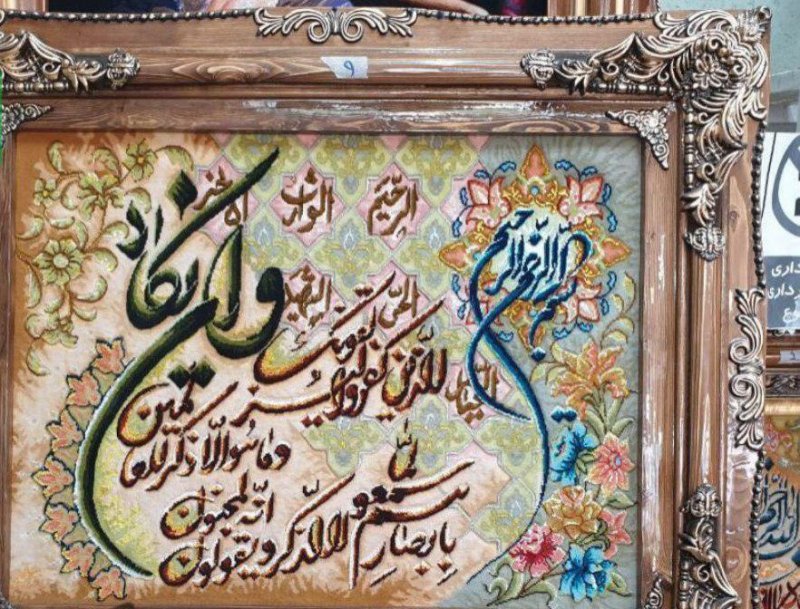 ۹
بسم الله الرحمن الرحیم
الرحیم
الوارث
الحی
الشهید
وان یکاد
الذین کفروا لیزلقونک
بابصارهم لما سمعوا الذکر ویقولون
انه لمجنون
وما هو الا ذکر للعالمین
داری
داری